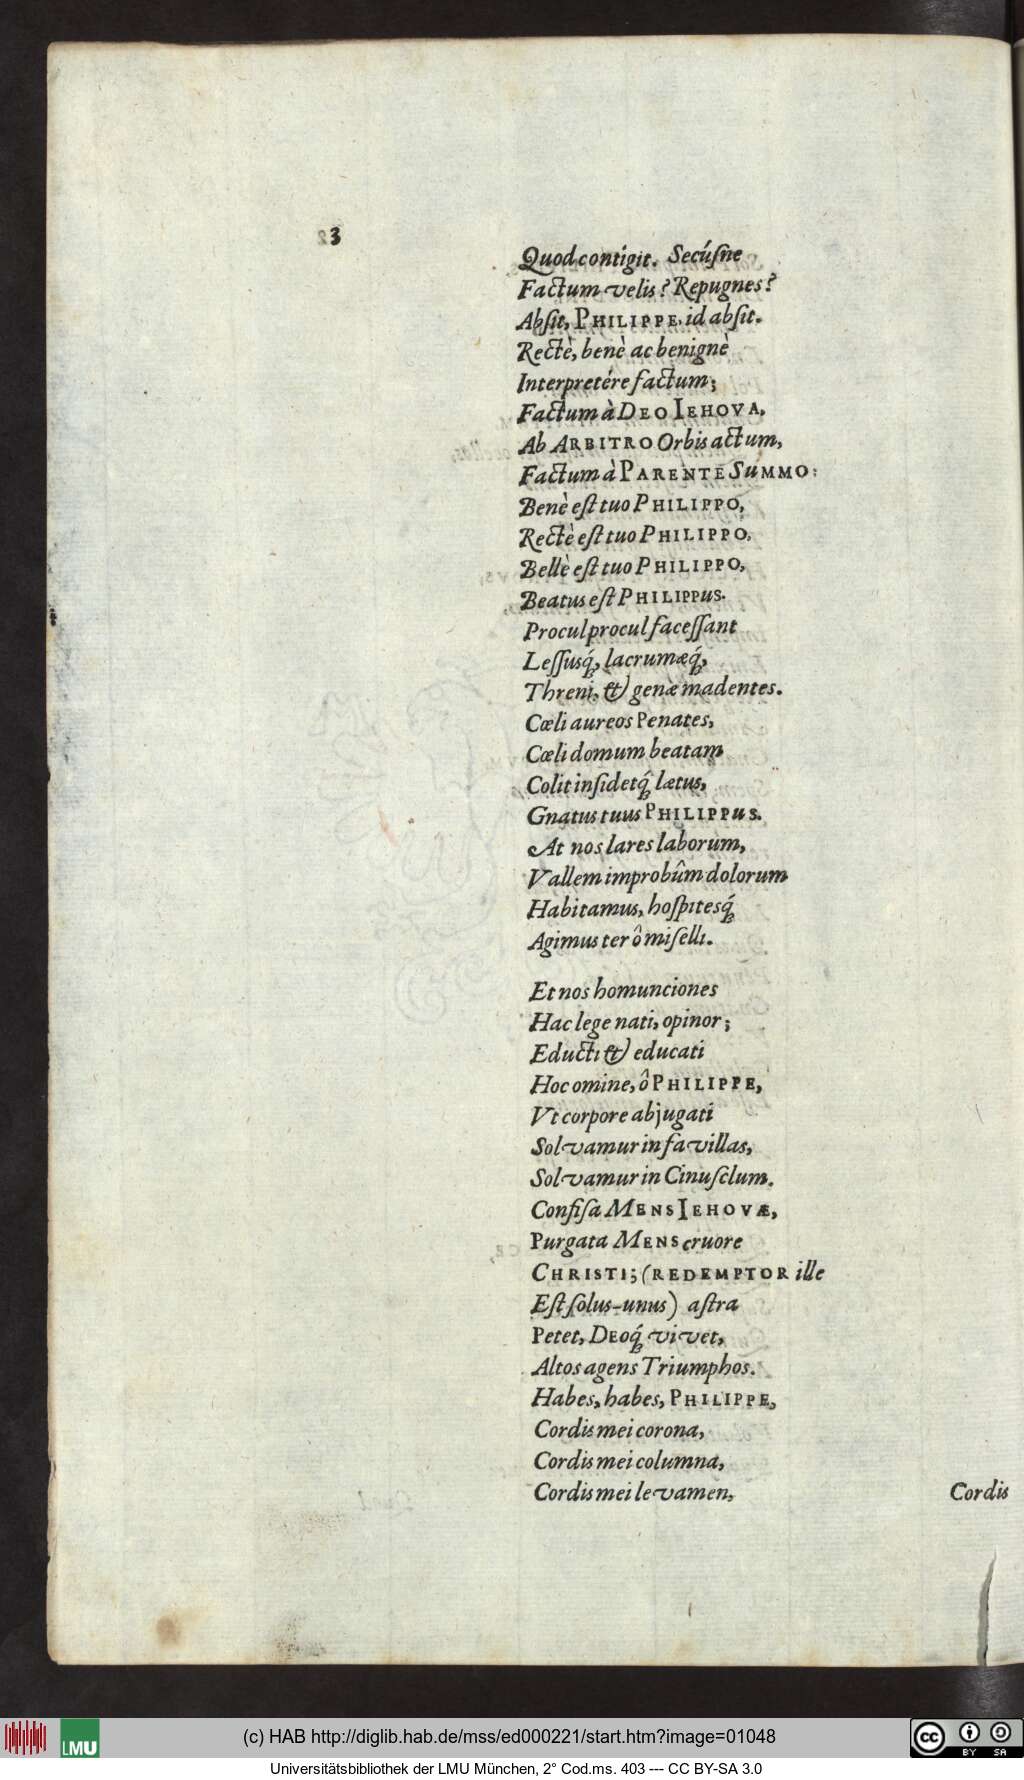 3
Quod contigit. Secúsne
Factum velis? Repugnes?
Absit, PHILIPPE, id absit.
Rectè, benè ac benignè
Interpretére factum;
Factum à DEO IEHOVA,
Ab ARBITRO Orbis actum,
Factum à PARENTE SUMMO:
Benè est tuo PHILIPPO,
Rectè est tuo PHILIPPO,
Bellè est tuo PHILIPPO,
Beatus est PHILIPPUS.
Procul procul facessant
Lessusq́;, lacrumæq́;,
Threni, & genæ madentes.
Cœli aureos Penates,
Cœli domum beatam
Colit insidetq́; lætus,
Gnatus tuus PHILIPPUS.
At nos lares laborum,
Vallem improbûm dolorum
Habitamus, hospitesq́;
Agimus ter ô miselli.
Et nos homunciones
Hac lege nati, opinor;
Educti & educati
Hoc omine, ô PHILIPPE,
Vt corpore abjugati
Solvamur in favillas,
Solvamur in Cinusclum.
Confisa MENS IEHOVÆ,
Purgata MENS cruore
CHRISTI; (REDEMPTOR ille
Est solus-unus) astra
Petet, DEOq́; vivet,
Altos agens Triumphos.
Habes, habes, PHILIPPE,
Cordis mei corona,
Cordis mei columna,
Cordis mei levamen,
Cordis
LMU
(c) HAB http://diglib.hab.de/mss/ed000221/start.htm?image=01048
cc BY SA
Universitätsbibliothek der LMU München, 2° Cod.ms. 403 --- CC BY-SA 3.0